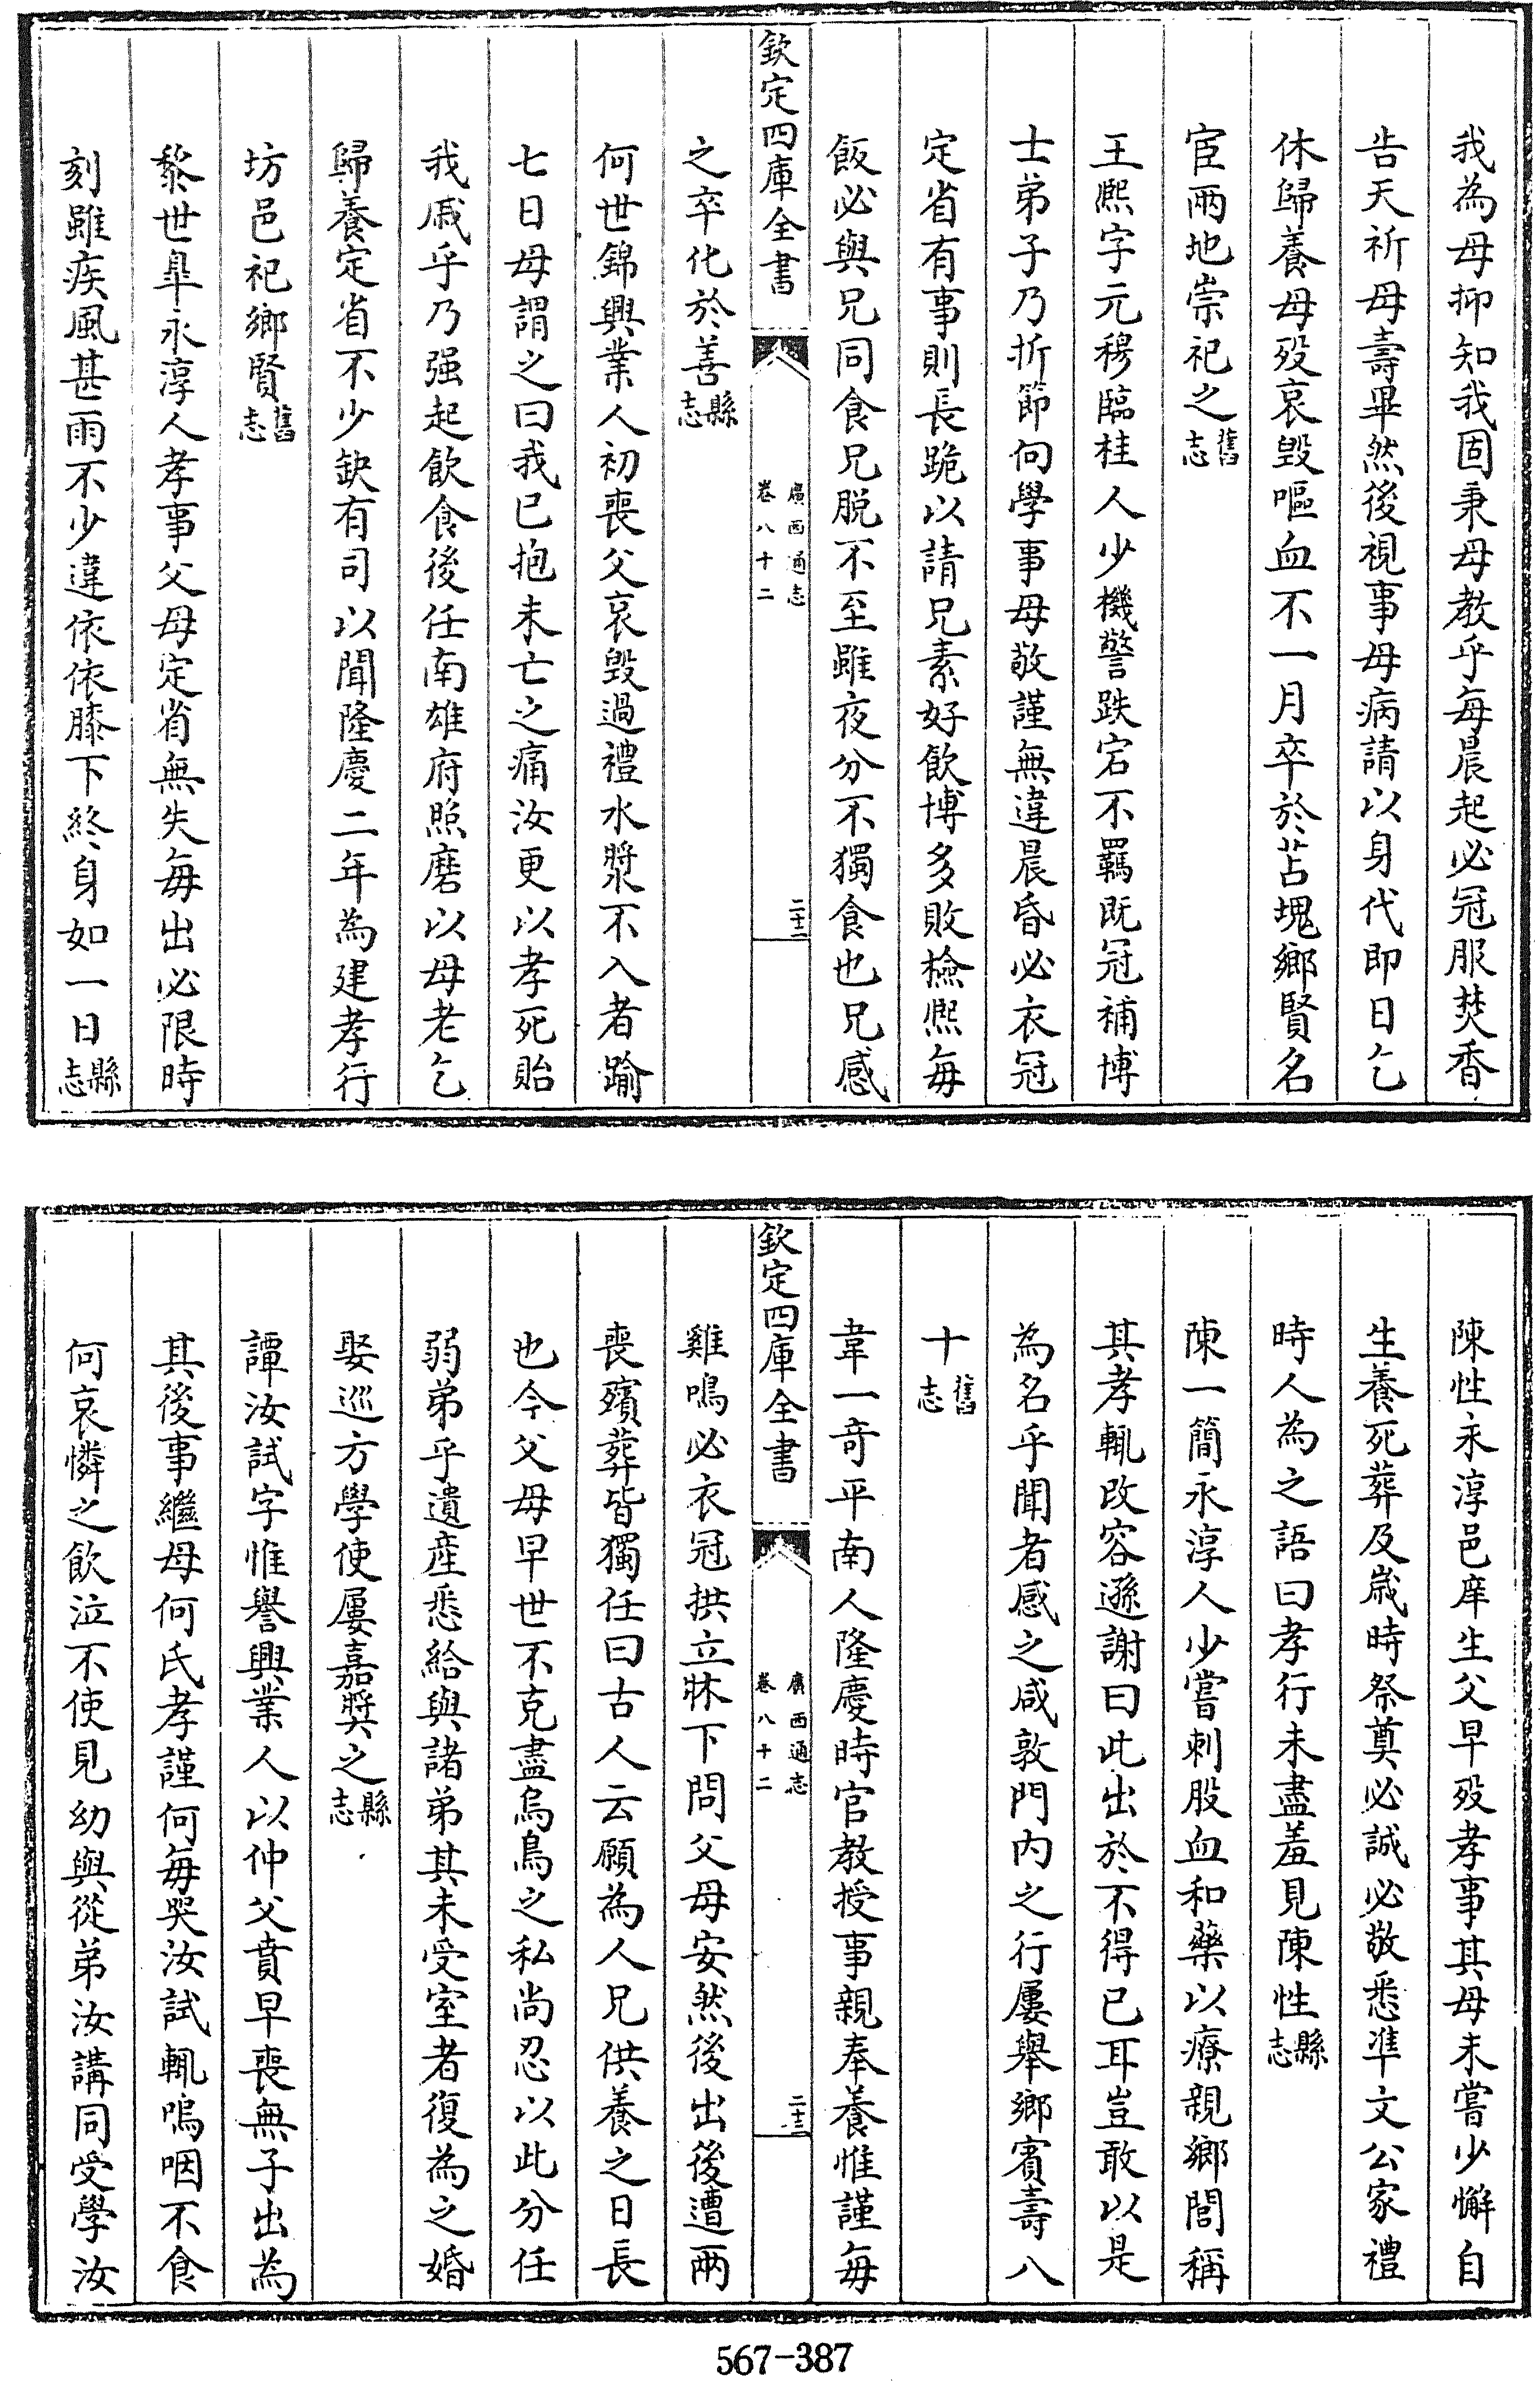 我為母抑知我固秉母教乎每晨起必冠服焚香
告天祈母壽畢然後視事母病請以身代即日乞
休歸養母歿哀毀嘔血不一月卒於苫塊鄉賢名
宦兩地崇祀之舊志
王熈字元穆臨桂人少機警跌宕不羈既冠補博
士弟子乃折節向學事母敬謹無違晨昏必衣冠
定省有事則長跪以請兄素好飲博多敗檢熈每
飯必與兄同食兄脱不至雖夜分不獨食也兄感
欽定四庫全書
廣西通志
卷八十二
二十二
之卒化於善縣志
何世錦興業人初喪父哀毀過禮水漿不入者踰
七日母謂之曰我已抱未亡之痛汝更以孝死貽
我戚乎乃强起飲食後任南雄府照磨以母老乞
歸養定省不少缺有司以聞隆慶二年為建孝行
坊邑祀鄉賢舊志
黎世臯永淳人孝事父母定省無失每出必限時
刻雖疾風甚雨不少違依依膝下終身如一日縣志
陳性永淳邑庠生父早歿孝事其母未嘗少懈自
生養死葬及歲時祭奠必誠必敬悉凖文公家禮
時人為之語曰孝行未盡羞見陳性縣志
陳一簡永淳人少嘗刺股血和藥以療親鄉閭稱
其孝輒改容遜謝曰此出於不得已耳豈敢以是
為名乎聞者感之咸敦門内之行屢舉鄉賓壽八
十舊志
韋一奇平南人隆慶時官教授事親奉養惟謹每
欽定四庫全書
廣西通志
卷八十二
二十三
雞鳴必衣冠拱立牀下問父母安然後出後遭兩
喪殯葬皆獨任曰古人云願為人兄供養之日長
也今父母早世不克盡烏鳥之私尚忍以此分任
弱弟乎遺産悉給與諸弟其未受室者復為之婚
娶巡方學使屢嘉奬之縣志
譚汝試字惟譽興業人以仲父賁早喪無子出為
其後事繼母何氏孝謹何每哭汝試輒嗚咽不食
何哀憐之飲泣不使見幼與從弟汝講同受學汝
567-387